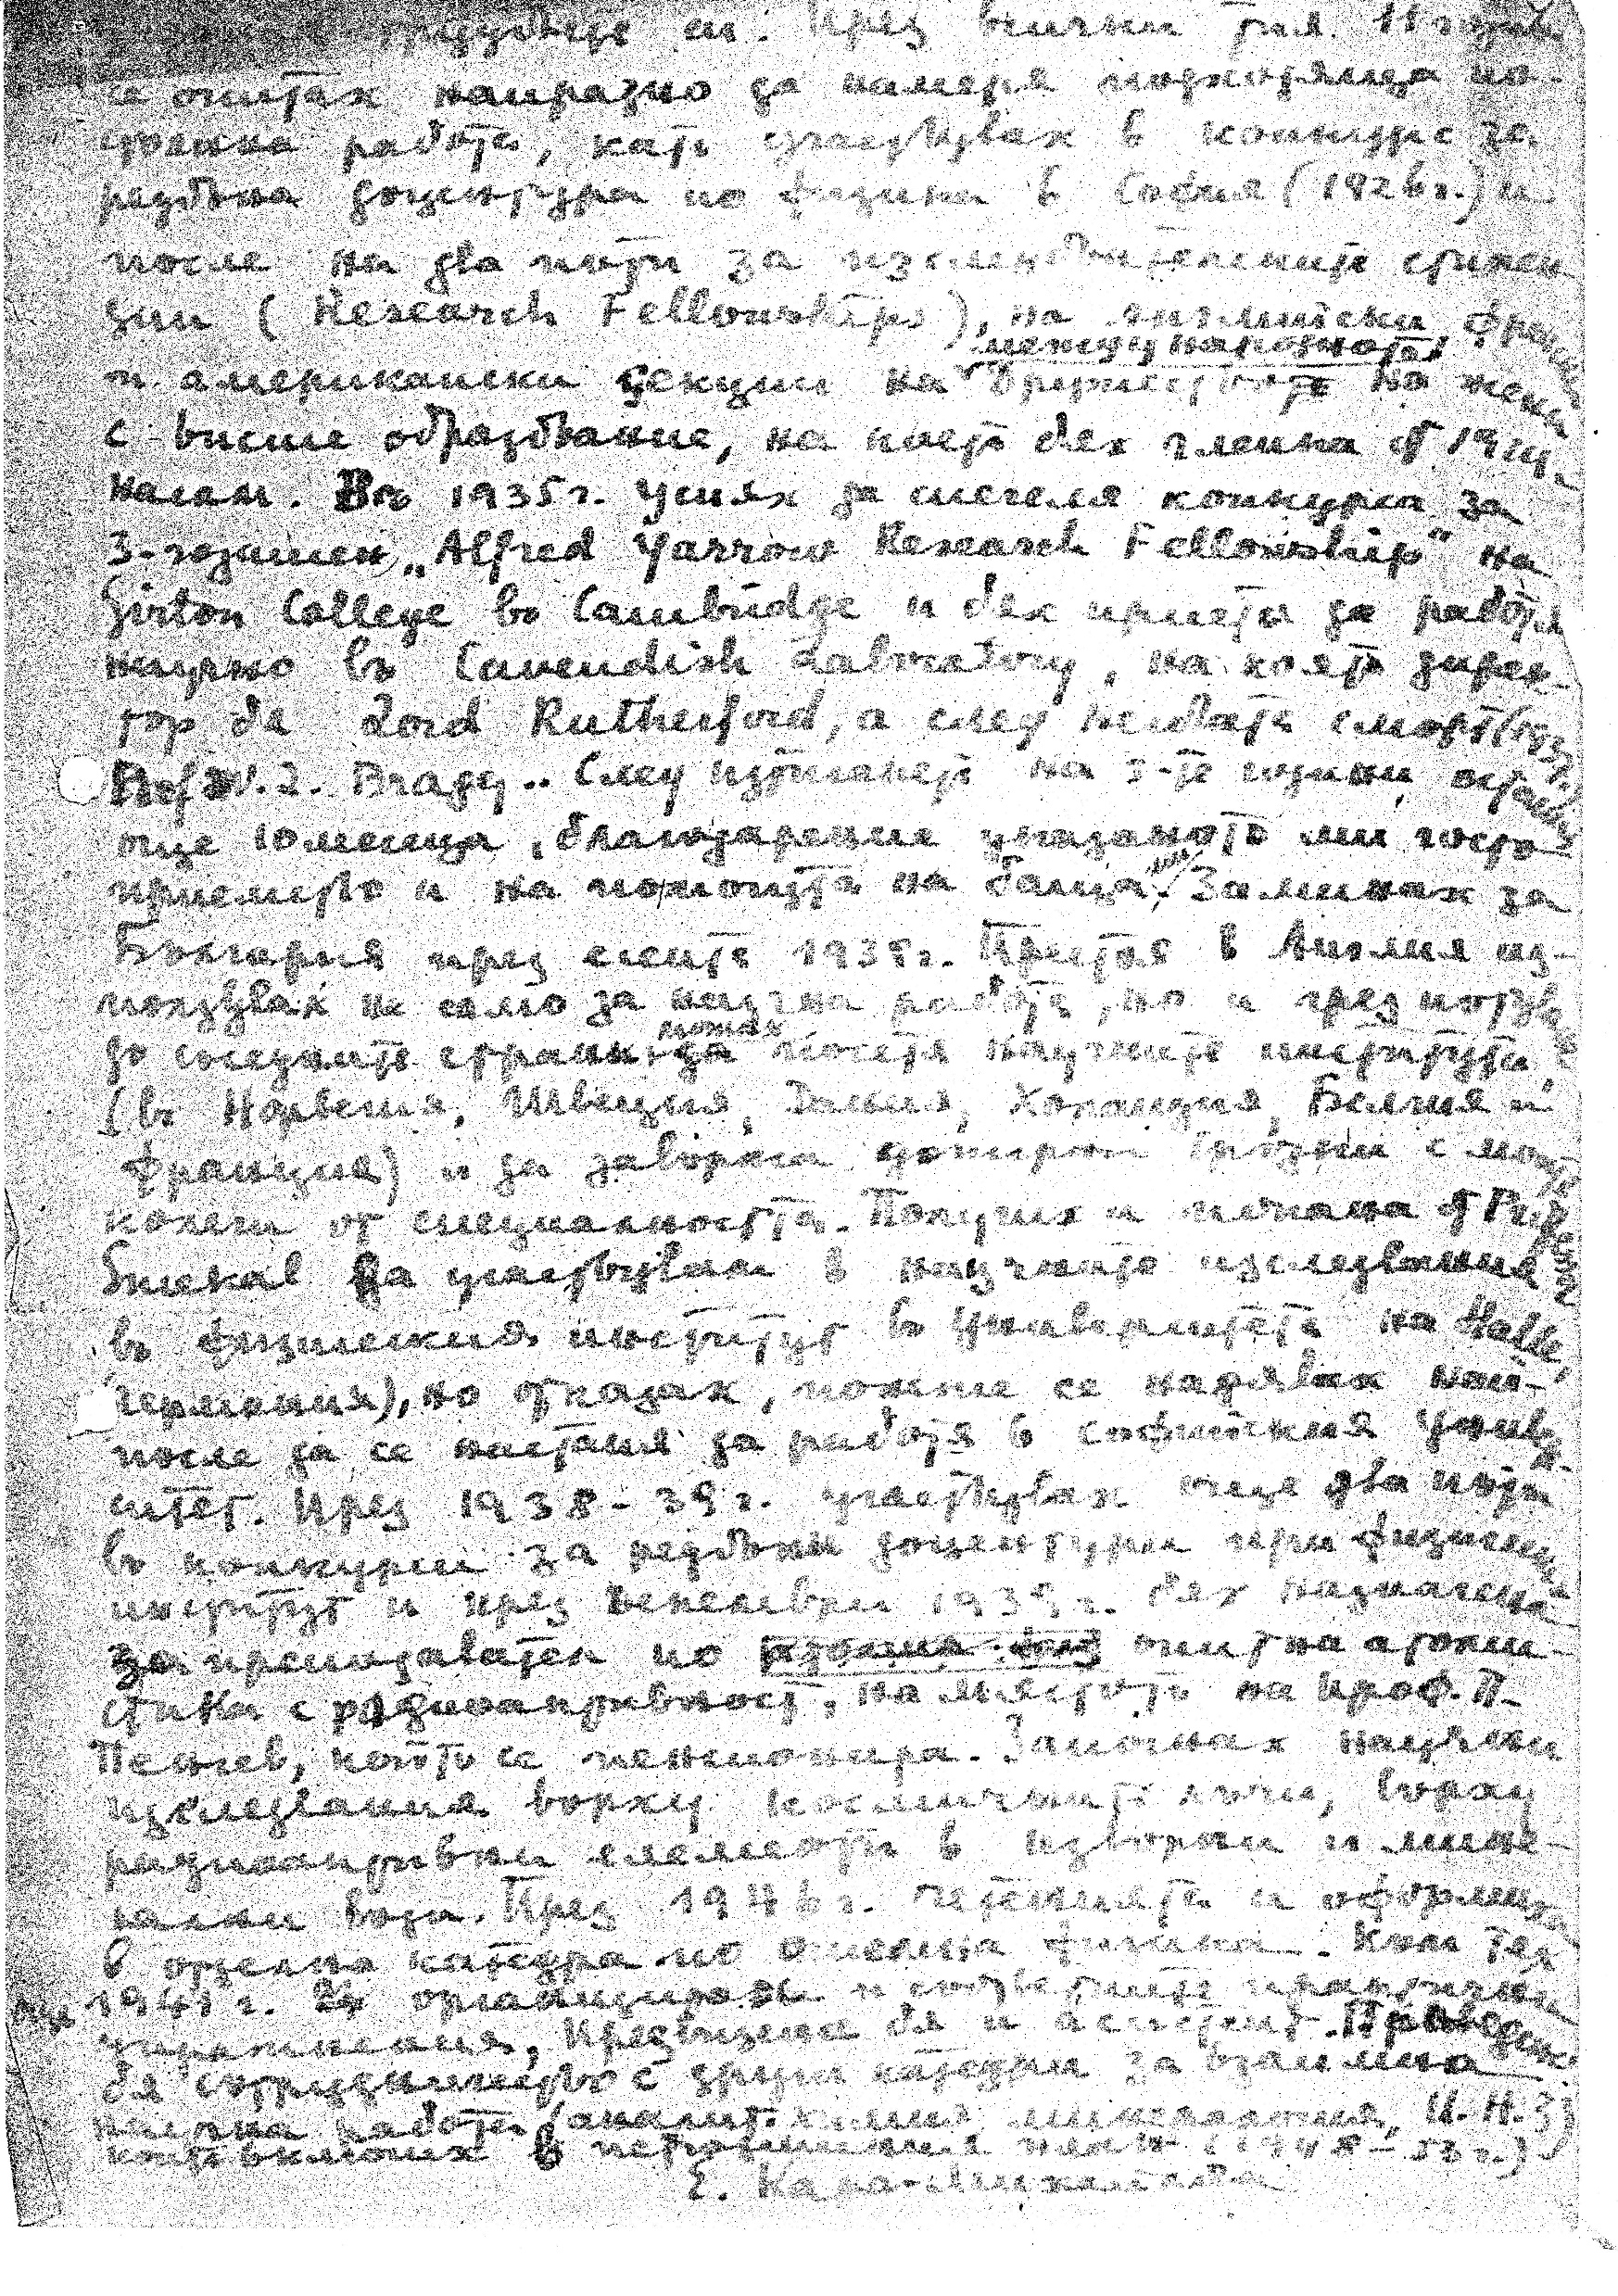 ми. През всички тия 11 години
се опитах напразно да намеря подходяща по-
стоянна работа, като участвувах в конкурс за
редовна доцентура по физика в София (1926 г.) и
после на два пъти за изследователските стипен-
дии (Research Fellowships), на английски
и американски секции на международното Дружеството на жени
с висше образование, на което бех членка от
насам. В 1935 г. успях да спечеля конкурса за
3-годишен „Alfred Yarrow Research Fellowship" на
Girton College в Cambridge и бех приета да работя
научно в Cavendish Laboratory, на която дирек-
тор бе Lord Rutherford, а след неговата смърт
Prof W. L. Bragg.. След изтичането на 3-те години останах
още 10 месеца, благодарение указаното ми госто-
приемство и на помощта на баща ми. Заминах за
България през есента 1939 г. Престоя в Англия из-
ползувах не само за научна работа, но и чрез
до соседните страни можах да посетя научните институти
(в Норвегия, Швеция, Дания, Холандия, Белгия и
Франция) и да завържа контакт с мои
колеги от специалността. Получих и покана от
Smekal да участвувам в научните изследвания
в физическия институт в Университета на Halle,
Германия), но отказах, понеже се надявах най-
после да се настаня да работя в Софийския Универ-
ситет. През 1938-39 г. участвувах още два пъти
в конкурси за редовни доцентури при физически
институт и през Декември 1939 г. бех назначена
за преподавател по опитна атоми-
стика с радиоактивност, на мястото на проф. П.
Пенчев, който се пенсионира. Започнах научни
изследвания върху космичните лъчи, върху
радиоактивни елементи в извори и мине-
рални води. През 1946 г. и оформиха
в отделна катедра по физика. Към тех
още 1941 г. организирах и съответните практични
упражнения. Предвидена бе и асистент.
бе сотрудничество с други катедри за взаимна
научна работа (аналит. химия, минералогия, И. Н. З.)
които включих в петгодишния план (1948-53 г.)
Е. Кара-Михайлова